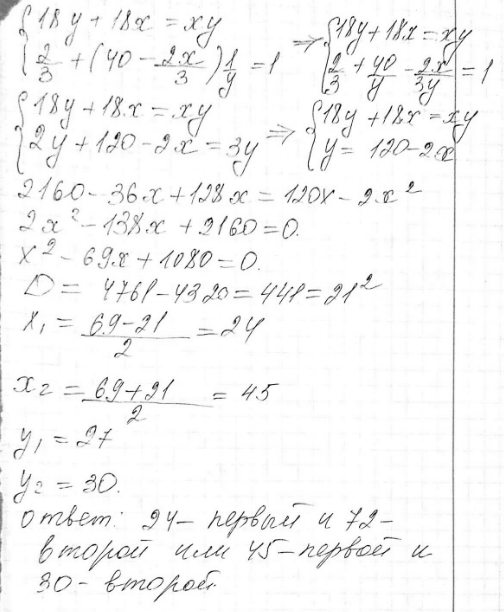 {18y + 18x = xy => {18y + 18x = xy
{2/3 + (40 - 2x/3) 1/y = 1 {2/3 + 40/y - 2x/3y = 1
{18y + 18x = xy => {18y + 18x = xy
{2y + 120 - 2x = 3y {y = 120 - 2x
2160 - 36x + 128x = 120x - 2x²
2x² - 138x + 2160 = 0.
x² - 69x + 1080 = 0.
D = 4761 - 4320 = 441 = 21²
x₁ = (69 - 21)/2 = 24
x₂ = (69 + 21)/2 = 45
y₁ = 27
y₂ = 30.
Ответ: 24 - первый и 72 -
второй или 45 - первой и
30 - второй.